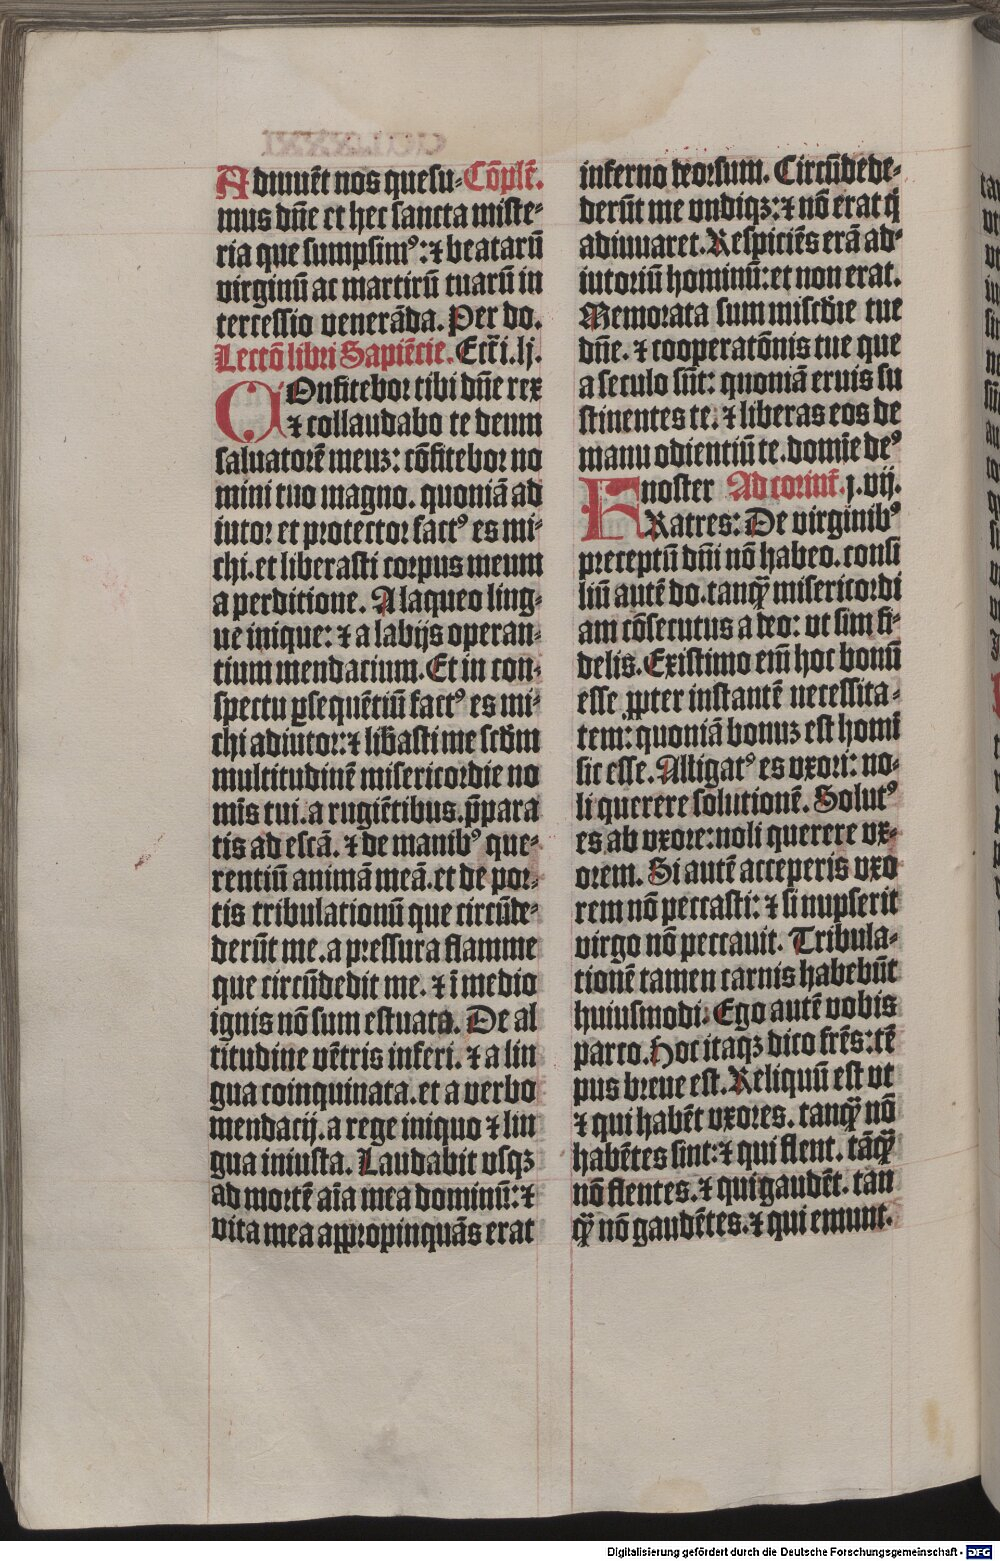 Adiuuēt nos quesu- Cōplēt.
mus dn̄e et hec sancta miste-
ria que sumpsimꝰ: ⁊ beatarū
virginū ac martirū tuarū in
tercessio venerāda. Per do.
Lectō libri Sapiēcie. Eccl̄i. lj.
COnfitebor tibi dn̄e rex
⁊ collaudabo te deum
saluatorē meuz: cōfitebor no
mini tuo magno. quoniā ad
iutor et protector factꝰ es mi-
chi. et liberasti corpus meum
a perditione. A laqueo ling-
ue inique: ⁊ a labijs operan-
tium mendacium. Et in con-
spectu ꝑsequētiū factꝰ es mi-
chi adiutor: ⁊ lib̄asti me scd̄m
multitudinē misericordie no
mīs tui. a rugiētibus. p̄para
tis ad escā. ⁊ de manibꝰ que-
rentiū animā meā. et de por-
tis tribulationū que circūde-
derūt me. a pressura flamme
que circūdedit me. ⁊ ī medio
ignis nō sum estuata. De al
titudine vētris inferi. ⁊ a lin
gua coinquinata. et a verbo
mendacij. a rege iniquo ⁊ lin
gua iniusta. Laudabit vsqꝫ
ad mortē aīa mea dominū: ⁊
vita mea appropinquās erat
inferno deorsum. Circūdede-
derūt me vndiqꝫ: ⁊ nō erat q̄
adiuuaret. Respiciēs erā ad-
iutoriū hominū: et non erat.
Memorata sum miscd̄ie tue
dn̄e. ⁊ cooperatōnis tue que
a seculo sūt: quoniā eruis su
stinentes te. ⁊ liberas eos de
manu odientiū te. domīe deꝰ
noster Ad corint̄. j. vij.
FRatres: De virginibꝰ
preceptū dn̄i nō habeo. consi
liū autē do. tanqꝫ̄ misericordi
am cōsecutus a deo: vt sim fi-
delis. Existimo eīm hoc bonū
esse ꝓpter instantē necessita-
tem: quoniā bonuz est homī
sic esse. Alligatꝰ es vxori: no-
li querere solutionē. Solutꝰ
es ab vxore: noli querere vx-
orem. Si autē acceperis vxo
rem nō peccasti: ⁊ si nupserit
virgo nō peccauit. Tribula-
tionē tamen carnis habebūt
huiusmodi. Ego autē vobis
parco. Hoc itaqꝫ dico frēs: tē
pus breue est. Reliquū est vt
⁊ qui habēt vxores. tanqꝫ̄ nō
habētes sint: ⁊ qui flent. tāqꝫ̄
nō flentes. ⁊ qui gaudēt. tan
qꝫ̄ nō gaudētes. ⁊ qui emunt.
Digitalisierung gefördert durch die Deutsche Forschungsgemeinschaft - DFG